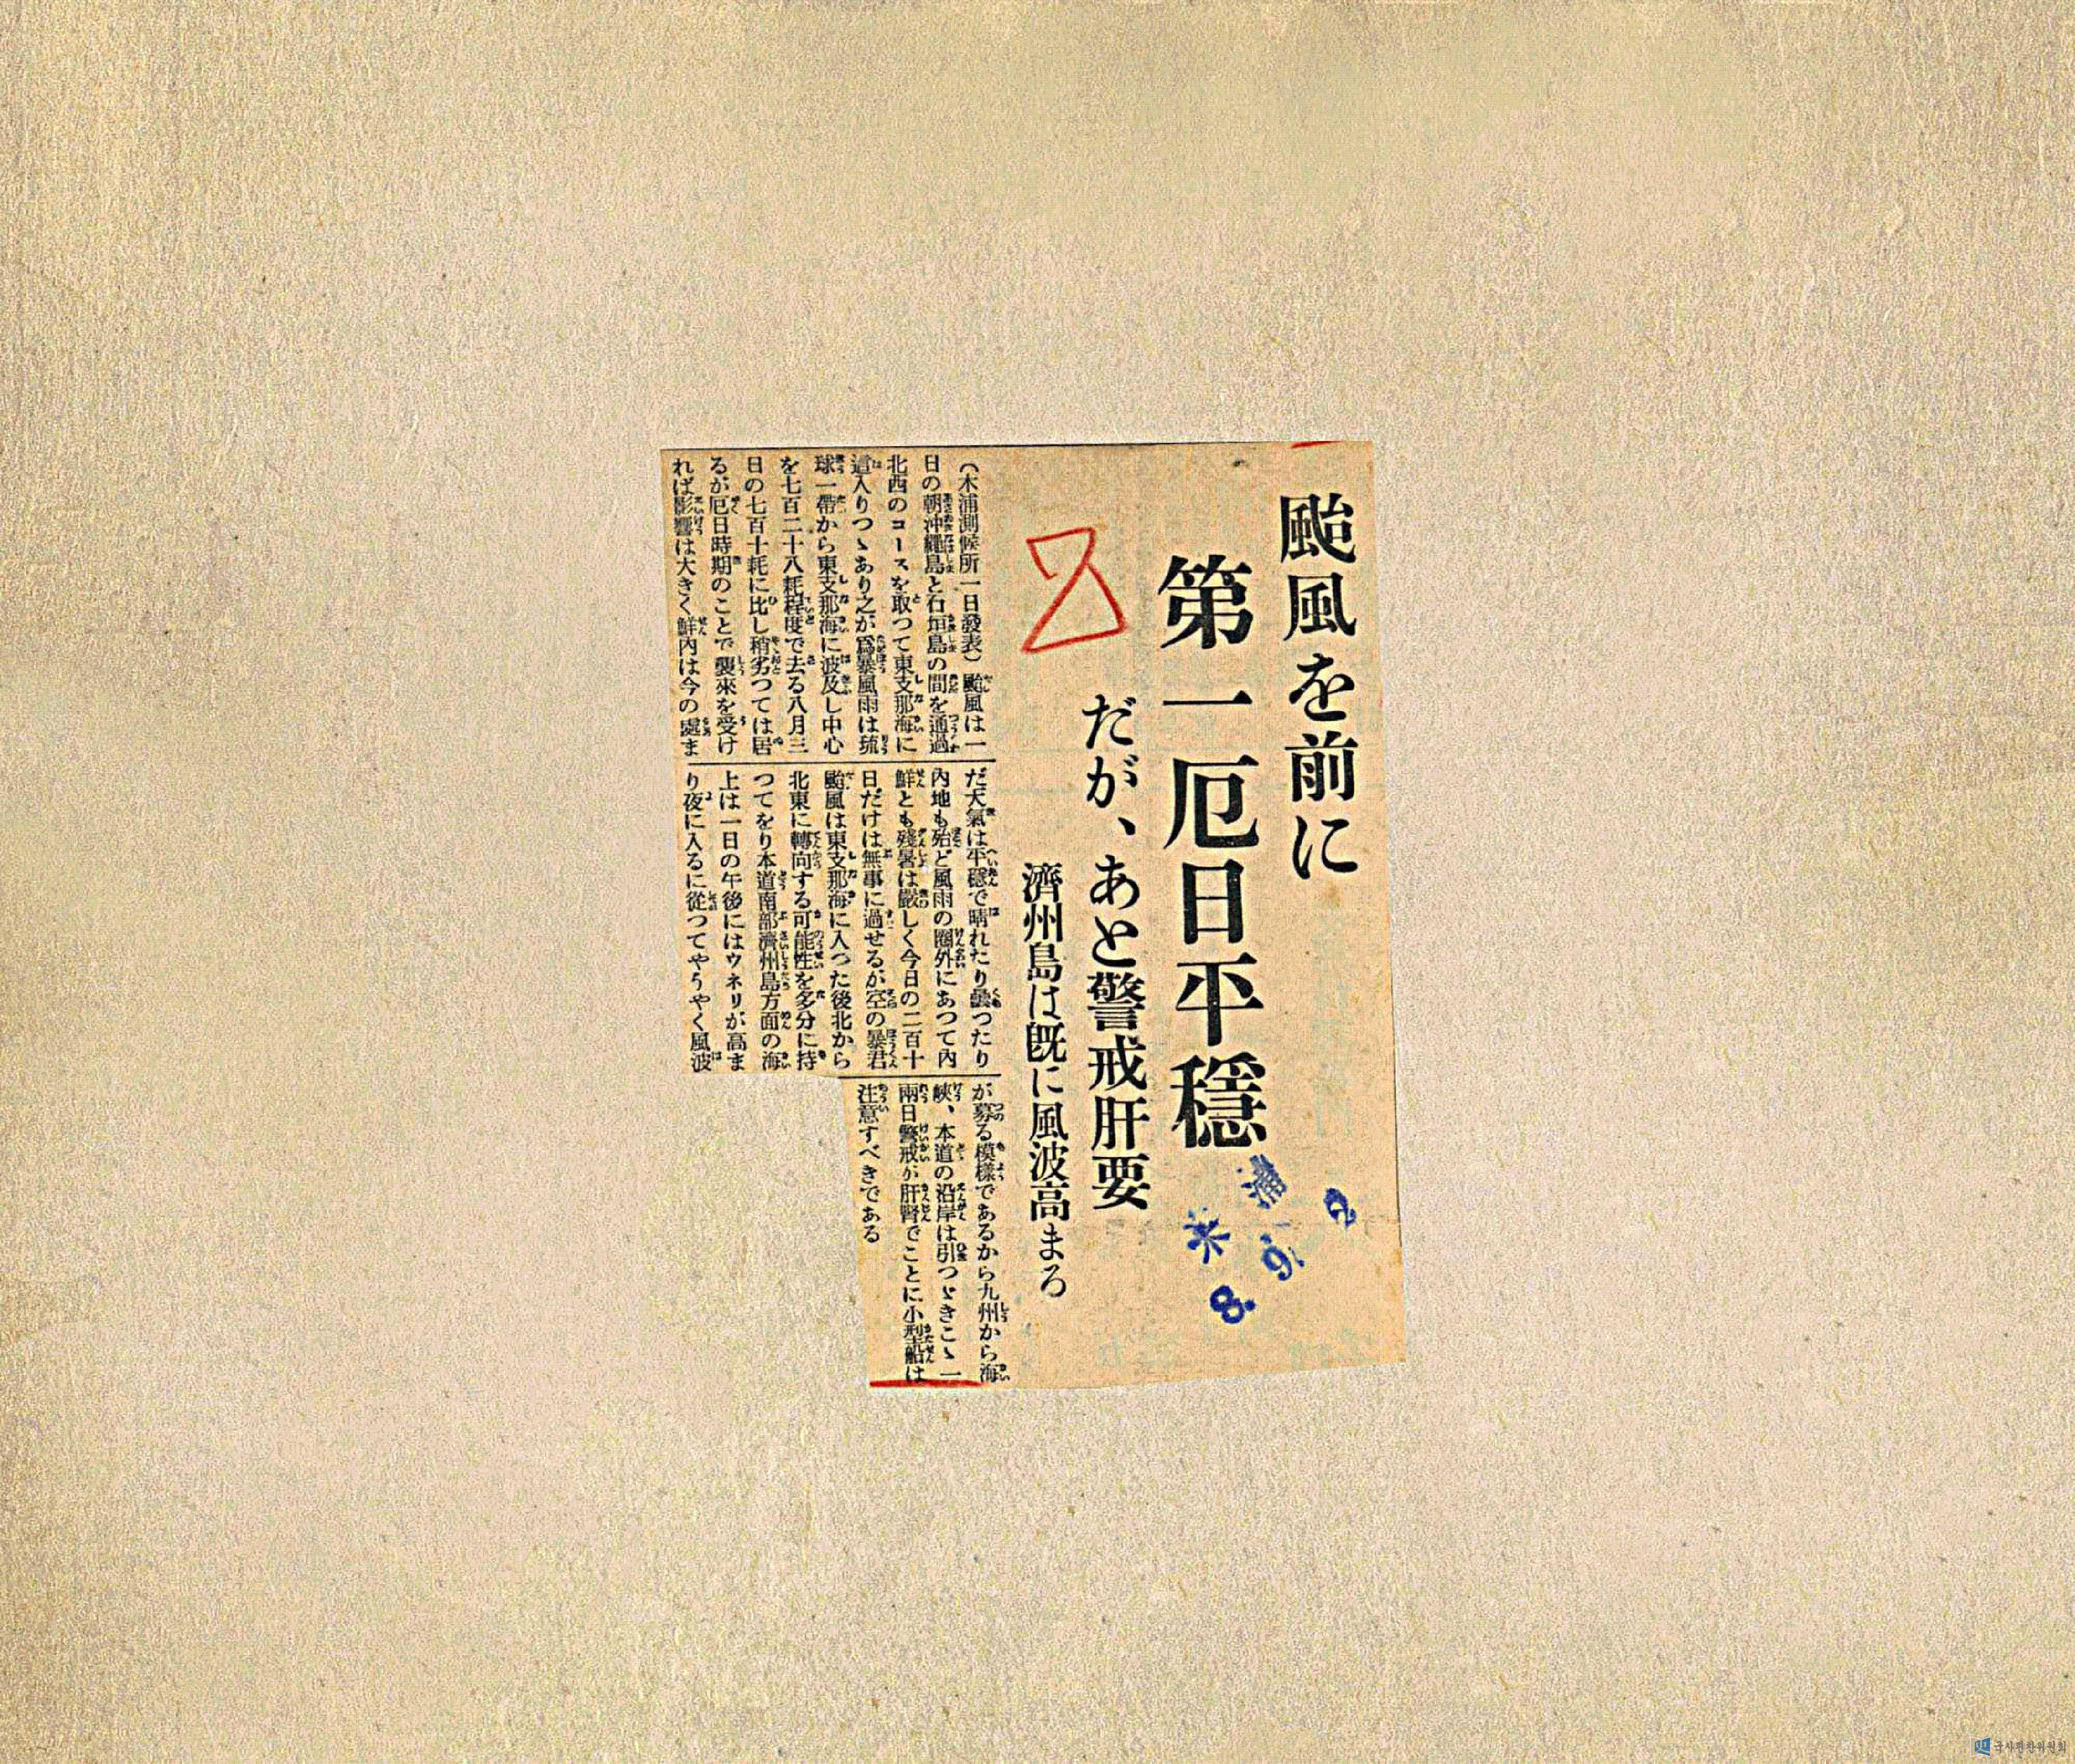 颱風を前に
第一厄日平穩
だが、あと警戒肝要
濟州島は既に風波高まる
(木浦測候所一日發表)颱風は一
日の朝沖繩島と石垣島の間を通過
北西のコースを取つて東支那海に
這入りつゝあり之が爲暴風雨は琉
球一帶から東支那海に波及し中心
を七百二十八粍程度で去る八月三
日の七百十粍に比し稍劣つては居
るが厄日時期のことで襲來を受け
れば影響は大きく鮮內は今の處ま
だ天氣は平穩で晴れたり曇つたり
內地も殆ど風雨の圈外にあつて內
鮮とも殘暑は嚴しく今日の二百十
日だけは無事に過せるが空の暴君
颱風は東支那海に入つた後北から
北東に轉向する可能性を多分に持
つてをり本道南部濟州島方面の海
上は一日の午後にはウネリが高ま
り夜に入るに從つてやうやく風波
が募る模樣であるから九州から海
峽、本道の沿岸は引つゞきこゝ一
兩日警戒が肝腎でことに小型船は
注意すべきである
木浦
8.9.2
국사편찬위원회